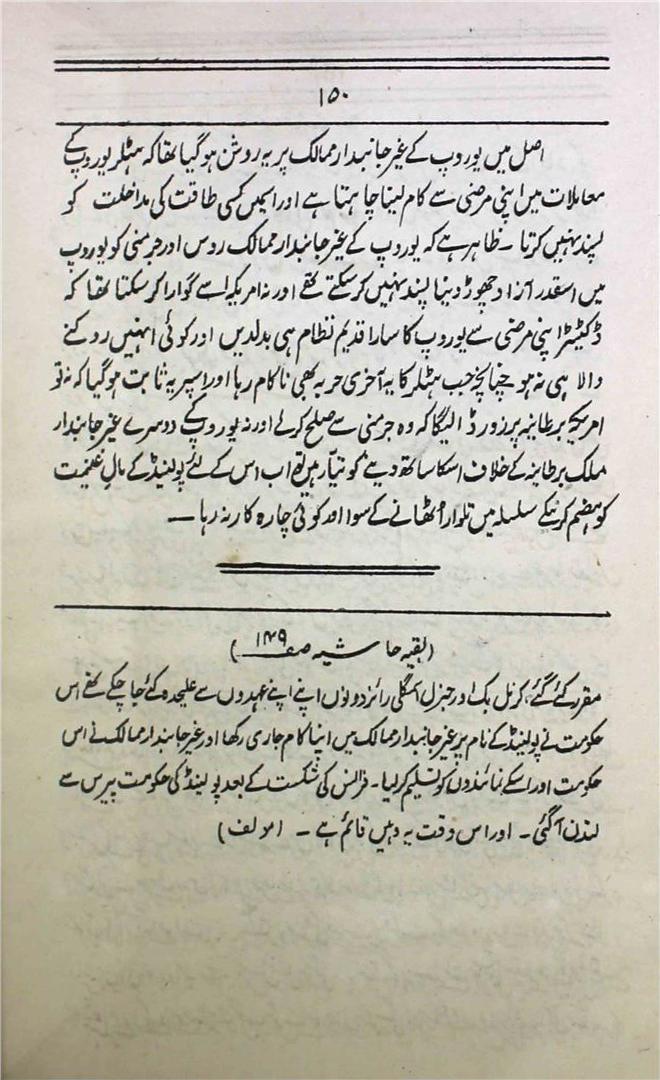 ۱۵۰
اصل میں یوروپ کے غیر جانبدار ممالک پر یہ روشن ہو گیا تھا کہ ہٹلر یوروپ کے
معاملات میں اپنی مرضی سے کام لینا چاہتا ہے اور اسمیں کسی طاقت کی مداخلت کو
پسند نہیں کرتا ۔ ظاہر ہے کہ یوروپ کے غیر جانبدار ممالک روس اور جرمنی کو یوروپ
میں اسقدر آزاد چھوڑ دینا پسند نہیں کر سکتے تھے اور نہ امریکہ اسے گوارا کر سکتا تھا کہ
ڈکٹیٹر اپنی مرضی سے یوروپ کا سارا قدیم نظام ہی بدلدیں اور کوئی انہیں روکنے
والا ہی نہ ہو چنانچہ جب ہٹلر کا یہ آخری حربہ بھی ناکام رہا اور اسپر یہ ثابت ہو گیا کہ نہ تو
امریکہ برطانیہ پر زور ڈالیگا کہ وہ جرمنی سے صلح کرلے اور نہ یوروپ کے دوسرے غیر جانبدار
ملک برطانیہ کے خلاف اسکا ساتھ دینے کو تیار ہیں تو اب اس کے لئے پولینڈ کے مال غنیمت
کو ہضم کرنیکے سلسلہ میں تلوار اُٹھانے کے سوا اور کوئی چارہ کار نہ رہا ۔
(بقیہ حاشیہ صفحہ ۱۴۹)
مقرر کئے گئے، کرنل بک اور جنرل اسمگلی رائز دونوں اپنے اپنے عہدوں سے علیحدہ کئے جا چکے تھے اس
حکومت نے پولینڈ کے نام پر غیر جانبدار ممالک میں اپنا کام جاری رکھا اور غیر جانبدار ممالک نے اس
حکومت اور اسکے نمائندوں کو تسلیم کر لیا ۔ فرانس کی شکست کے بعد پولینڈ کی حکومت پیرس سے
لندن آگئی ۔ اور اس وقت یہ وہیں قائم ہے ۔ (مولف)